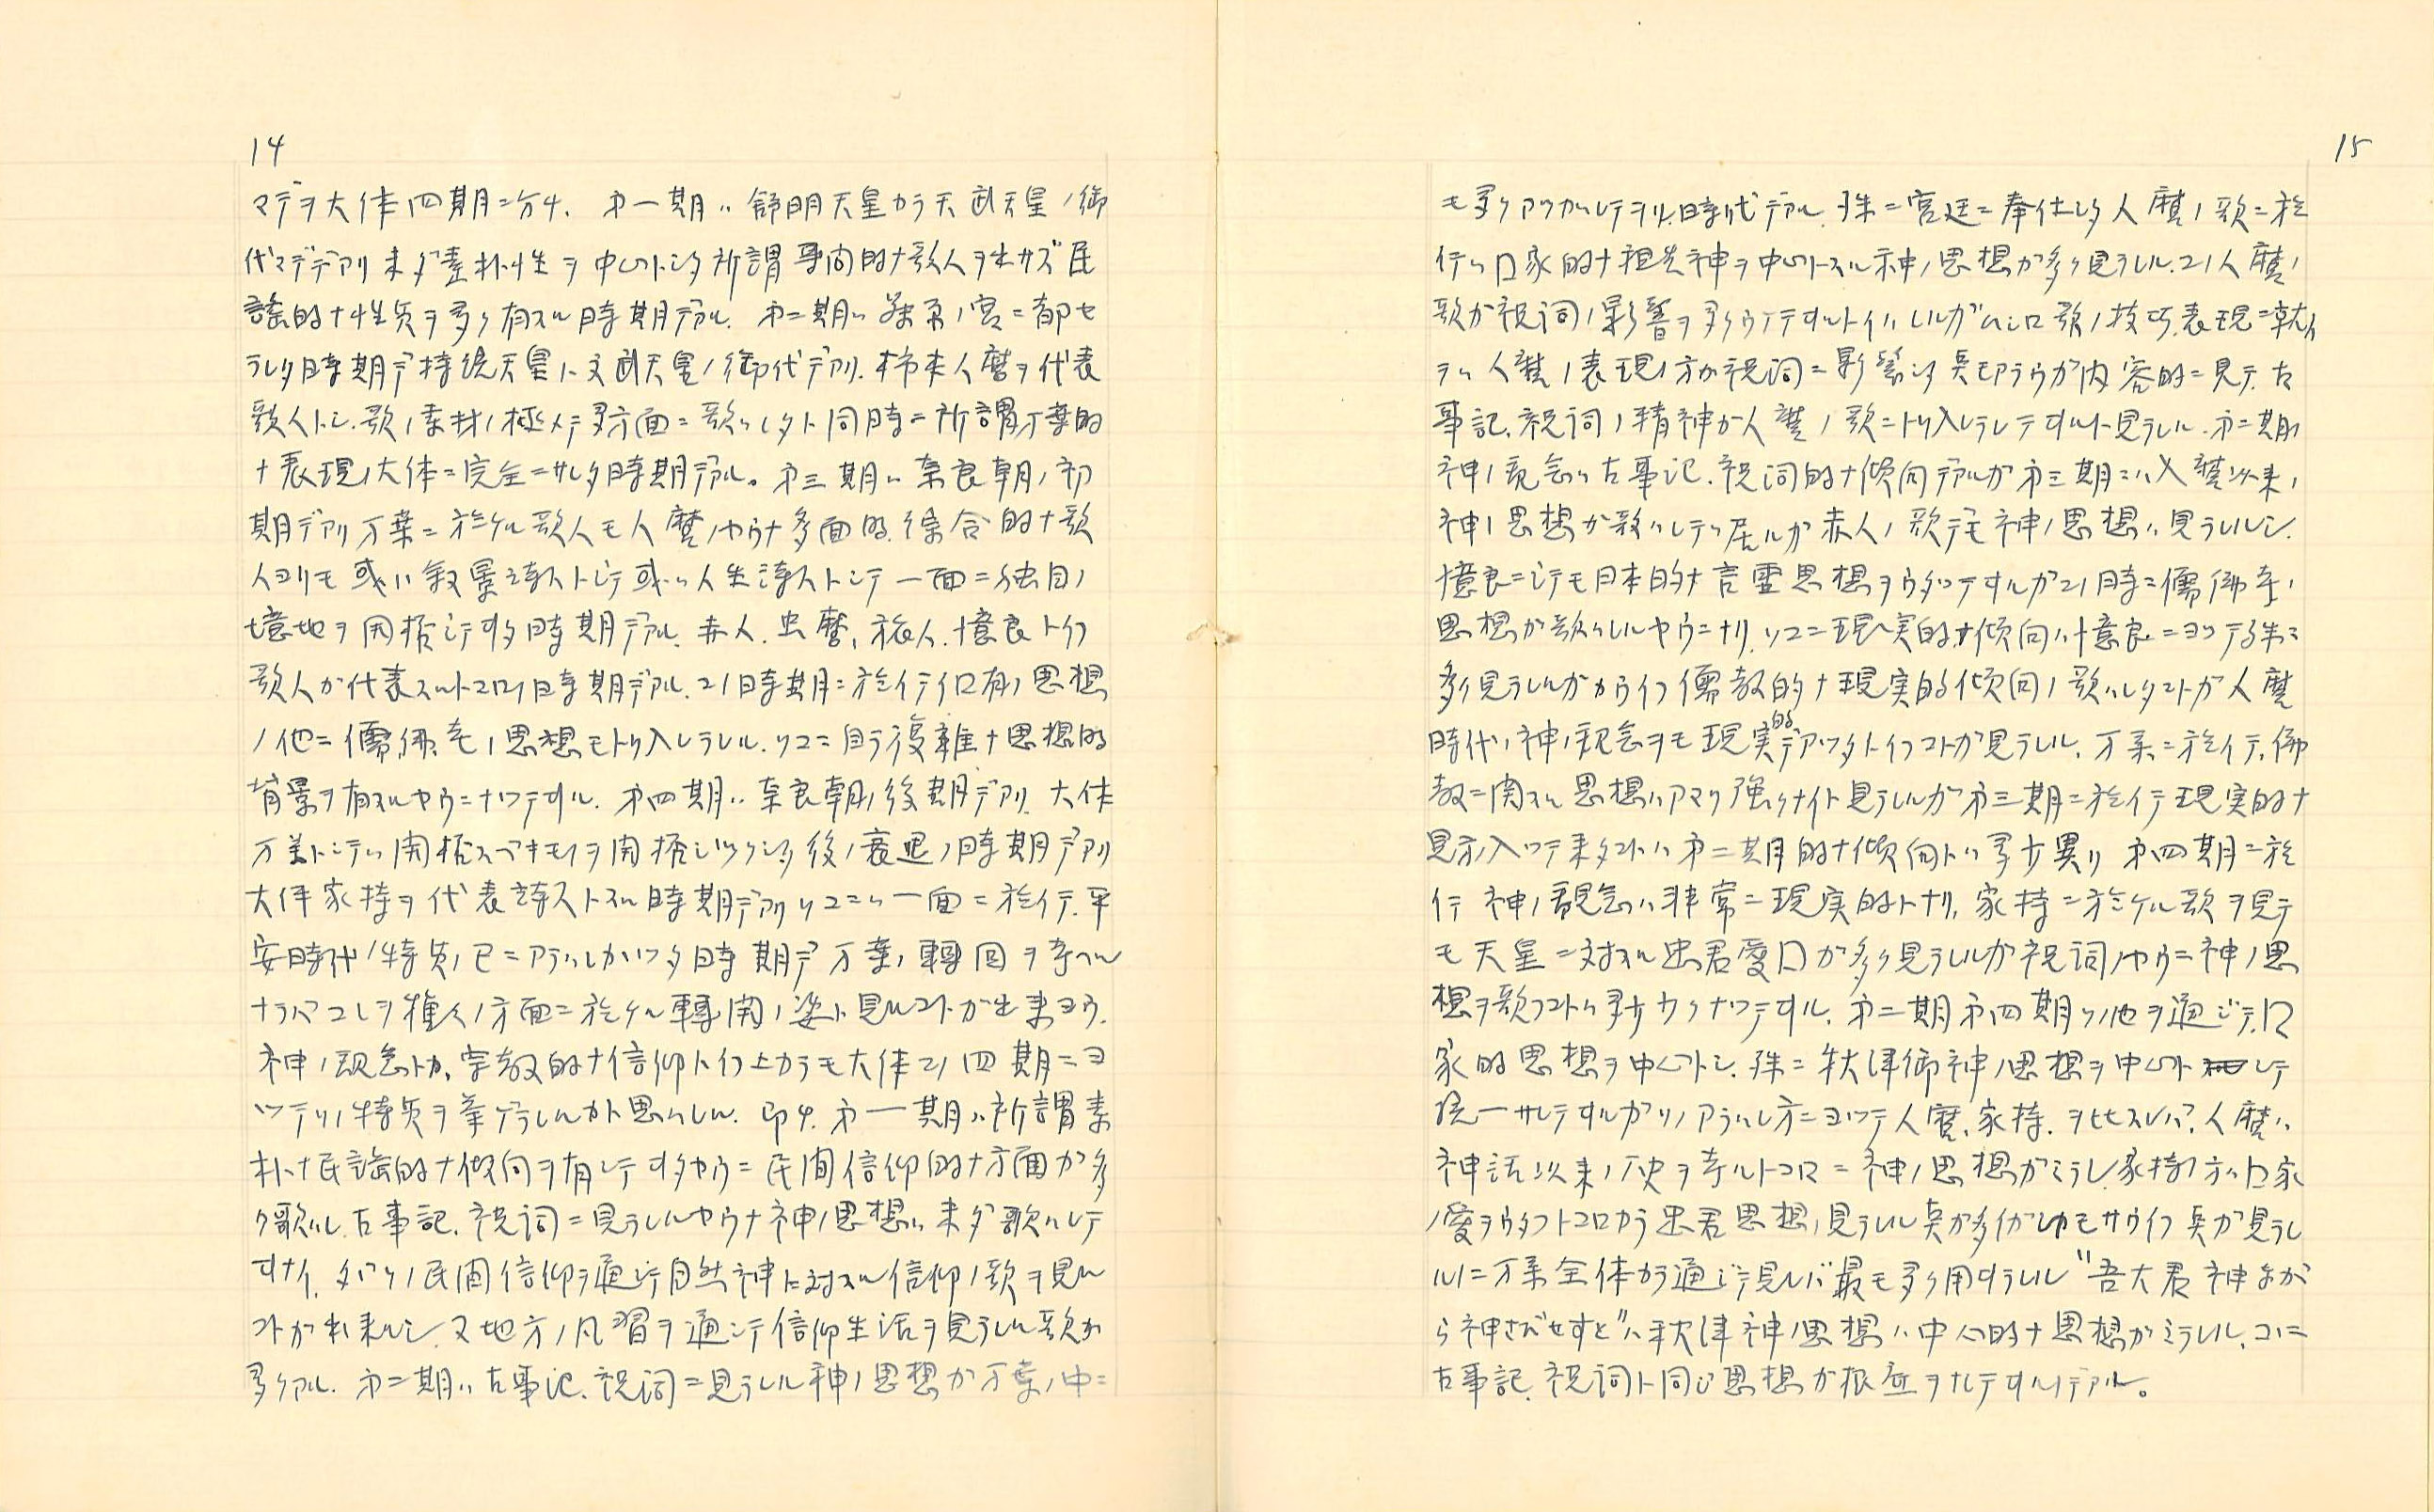 14
マデヲ大体四期ニ分チ、第一期ハ舒明天皇カラ天武天皇ノ御
代マデデアリ未ダ素朴性ヲ中心トシタ所謂専向的ナ歌人ヲ出サズ民
謡的ナ性質ヲ多ク有スル時期デアル. 第二期ハ藤原ノ宮ニ都セ
ラレタ時期デ持統天皇ト文武天皇ノ御代デアリ. 柿本人麿ヲ代表
歌人トシ. 歌ノ素材ノ極メテ多方面ニ歌ハレタト同時ニ所謂万葉的
ナ表現ノ大体ニ完全ニサレタ時期デアル。第三期ハ奈良朝ノ初
期デアリ万葉ニ於ケル歌人モ人麿ノヤウナ多面的. 綜合的ナ歌
人ヨリモ或ハ叙景詩人トシテ或ハ人生詩人トシテ一面ニ独自ノ
境地ヲ開拓シテヰタ時期デアル. 赤人. 虫麿、旅人. 憶良トイフ
歌人ガ代表スルトコロノ時期デアル. コノ時期ニ於イテ仁固有ノ思想
ノ他ニ儒佛. 老ノ思想モトリ入レラレル. ソコニ自ラ複雑ナ思想的
背景ヲ有スルヤウニナツテヰル. 第四期ハ奈良朝ノ後期デアリ. 大体
万葉トシテハ開拓スベキモノヲ開拓シツクシタ後ノ衰退ノ時期デアリ
大伴家持ヲ代表詩人トスル時期デアリソコニハ一面ニ於イテ. 平
安時代ノ特質ノ已ニアラハレカカツタ時期デ万葉ノ轉回ヲ考ヘル
ナラバコレヲ種々ノ方面ニ於ケル轉開ノ姿ト見ルコトガ出来ヨウ.
神ノ観念トカ、宗教的ナ信仰トイフ上カラモ大体コノ四期ニヨ
ツテソノ特質ヲ挙ゲラレルカト思ハレル. 即チ. 第一期ハ所謂素
朴ナ民謡的ナ傾向ヲ有シテヰタヤウニ民間信仰的ナ方面ガ多
ク歌ハレ. 古事記. 祝詞ニ見ラレルヤウナ神ノ思想ハ未ダ歌ハレテ
ヰナイ. タダソノ民間信仰ヲ通ジテ自然神ニ対スル信仰ノ歌ヲ見ル
コトガ出来ルシ. 又地方ノ風習ヲ通シテ信仰生活ヲ見ラレル歌ガ
多クアル. 第二期ハ古事記. 祝詞ニ見ラレル神ノ思想ガ万葉ノ中ニ
15
モ多クアツカハレテヲル. 時代デアル. 殊ニ宮廷ニ奉仕シタ人麿ノ歌ニ於
イテハ国家的ナ祖先神ヲ中心トスル神ノ思想ガ多ク見ラレル. コノ人麿ノ
歌ガ祝詞ノ影響ヲ多クウケテヰルトイハレルガムシロ歌ノ技巧. 表現ニ就イ
テハ人麿ノ表現ノ方ガ祝詞ニ影響シタ点モアラウガ内容的ニ見テ. 古
事記. 祝詞ノ精神ガ人麿ノ歌ニトリ入レラレテヰルト見ラレル. 第二期ノ
神ノ観念ハ古事記. 祝詞的ナ傾向デアルガ第三期ニハ人麿以来ノ
神ノ思想ガ歌ハレテハ居ルガ赤人ノ歌デモ神ノ思想ハ見ラレルシ.
憶良ニシテモ日本的ナ言霊思想ヲウタツテヰルガコノ時ニ儒佛老ノ
思想ガ歌ハレルヤウニナリ. ソコニ現実的ナ傾向ハ憶良ニヨツテ殊ニ
多ク見ラレルガカウイフ儒教的ナ現実的傾向ノ歌ハレタコトガ人麿
時代ノ神ノ観念ヲモ現実的デアツタトイフコトガ見ラレル. 万葉ニ於イテ. 佛
教ニ関スル思想ハアマリ強クナイト見ラレルガ第三期ニ於イテ現実的ナ
見方ノ入ツテ来タコトハ第二期的ナ傾向トハ多少異リ第四期ニ於
イテ神ノ観念ハ非常ニ現実的トナリ. 家持ニ於ケル歌ヲ見テ
モ天皇ニ対スル忠君愛国ガ多ク見ラレルガ祝詞ノヤウニ神ノ思
想ヲ歌フコトハ多少ウスクナツテヰル. 第二期第四期ソノ他ヲ通ジテ. 国
家的思想ヲ中心トシ. 殊ニ秋津御神ノ思想ヲ中心トシテ
統一サレテヰルガソノアラハレ方ニヨツテ人麿. 家持. ヲ比スレバ. 人麿ハ
神話以来ノ歴史ヲ考ルトコロニ神ノ思想ガミラレ. 家持ノ方ハ国家
ノ愛ヲウタフトコロカラ忠君思想ノ見ラレル点ガ多イガシカモサウイフ点ガ見ラレ
ルノニ万葉全体カラ通ジテ見レバ最モ多ク用ヰラレル〝吾大君神ながら
神さびせすと〟ハ秋津神ノ思想ハ中心的ナ思想ガミラレル. コレニ
古事記. 祝詞ト同ジ思想ガ根底ヲナシテヰルノデアル。